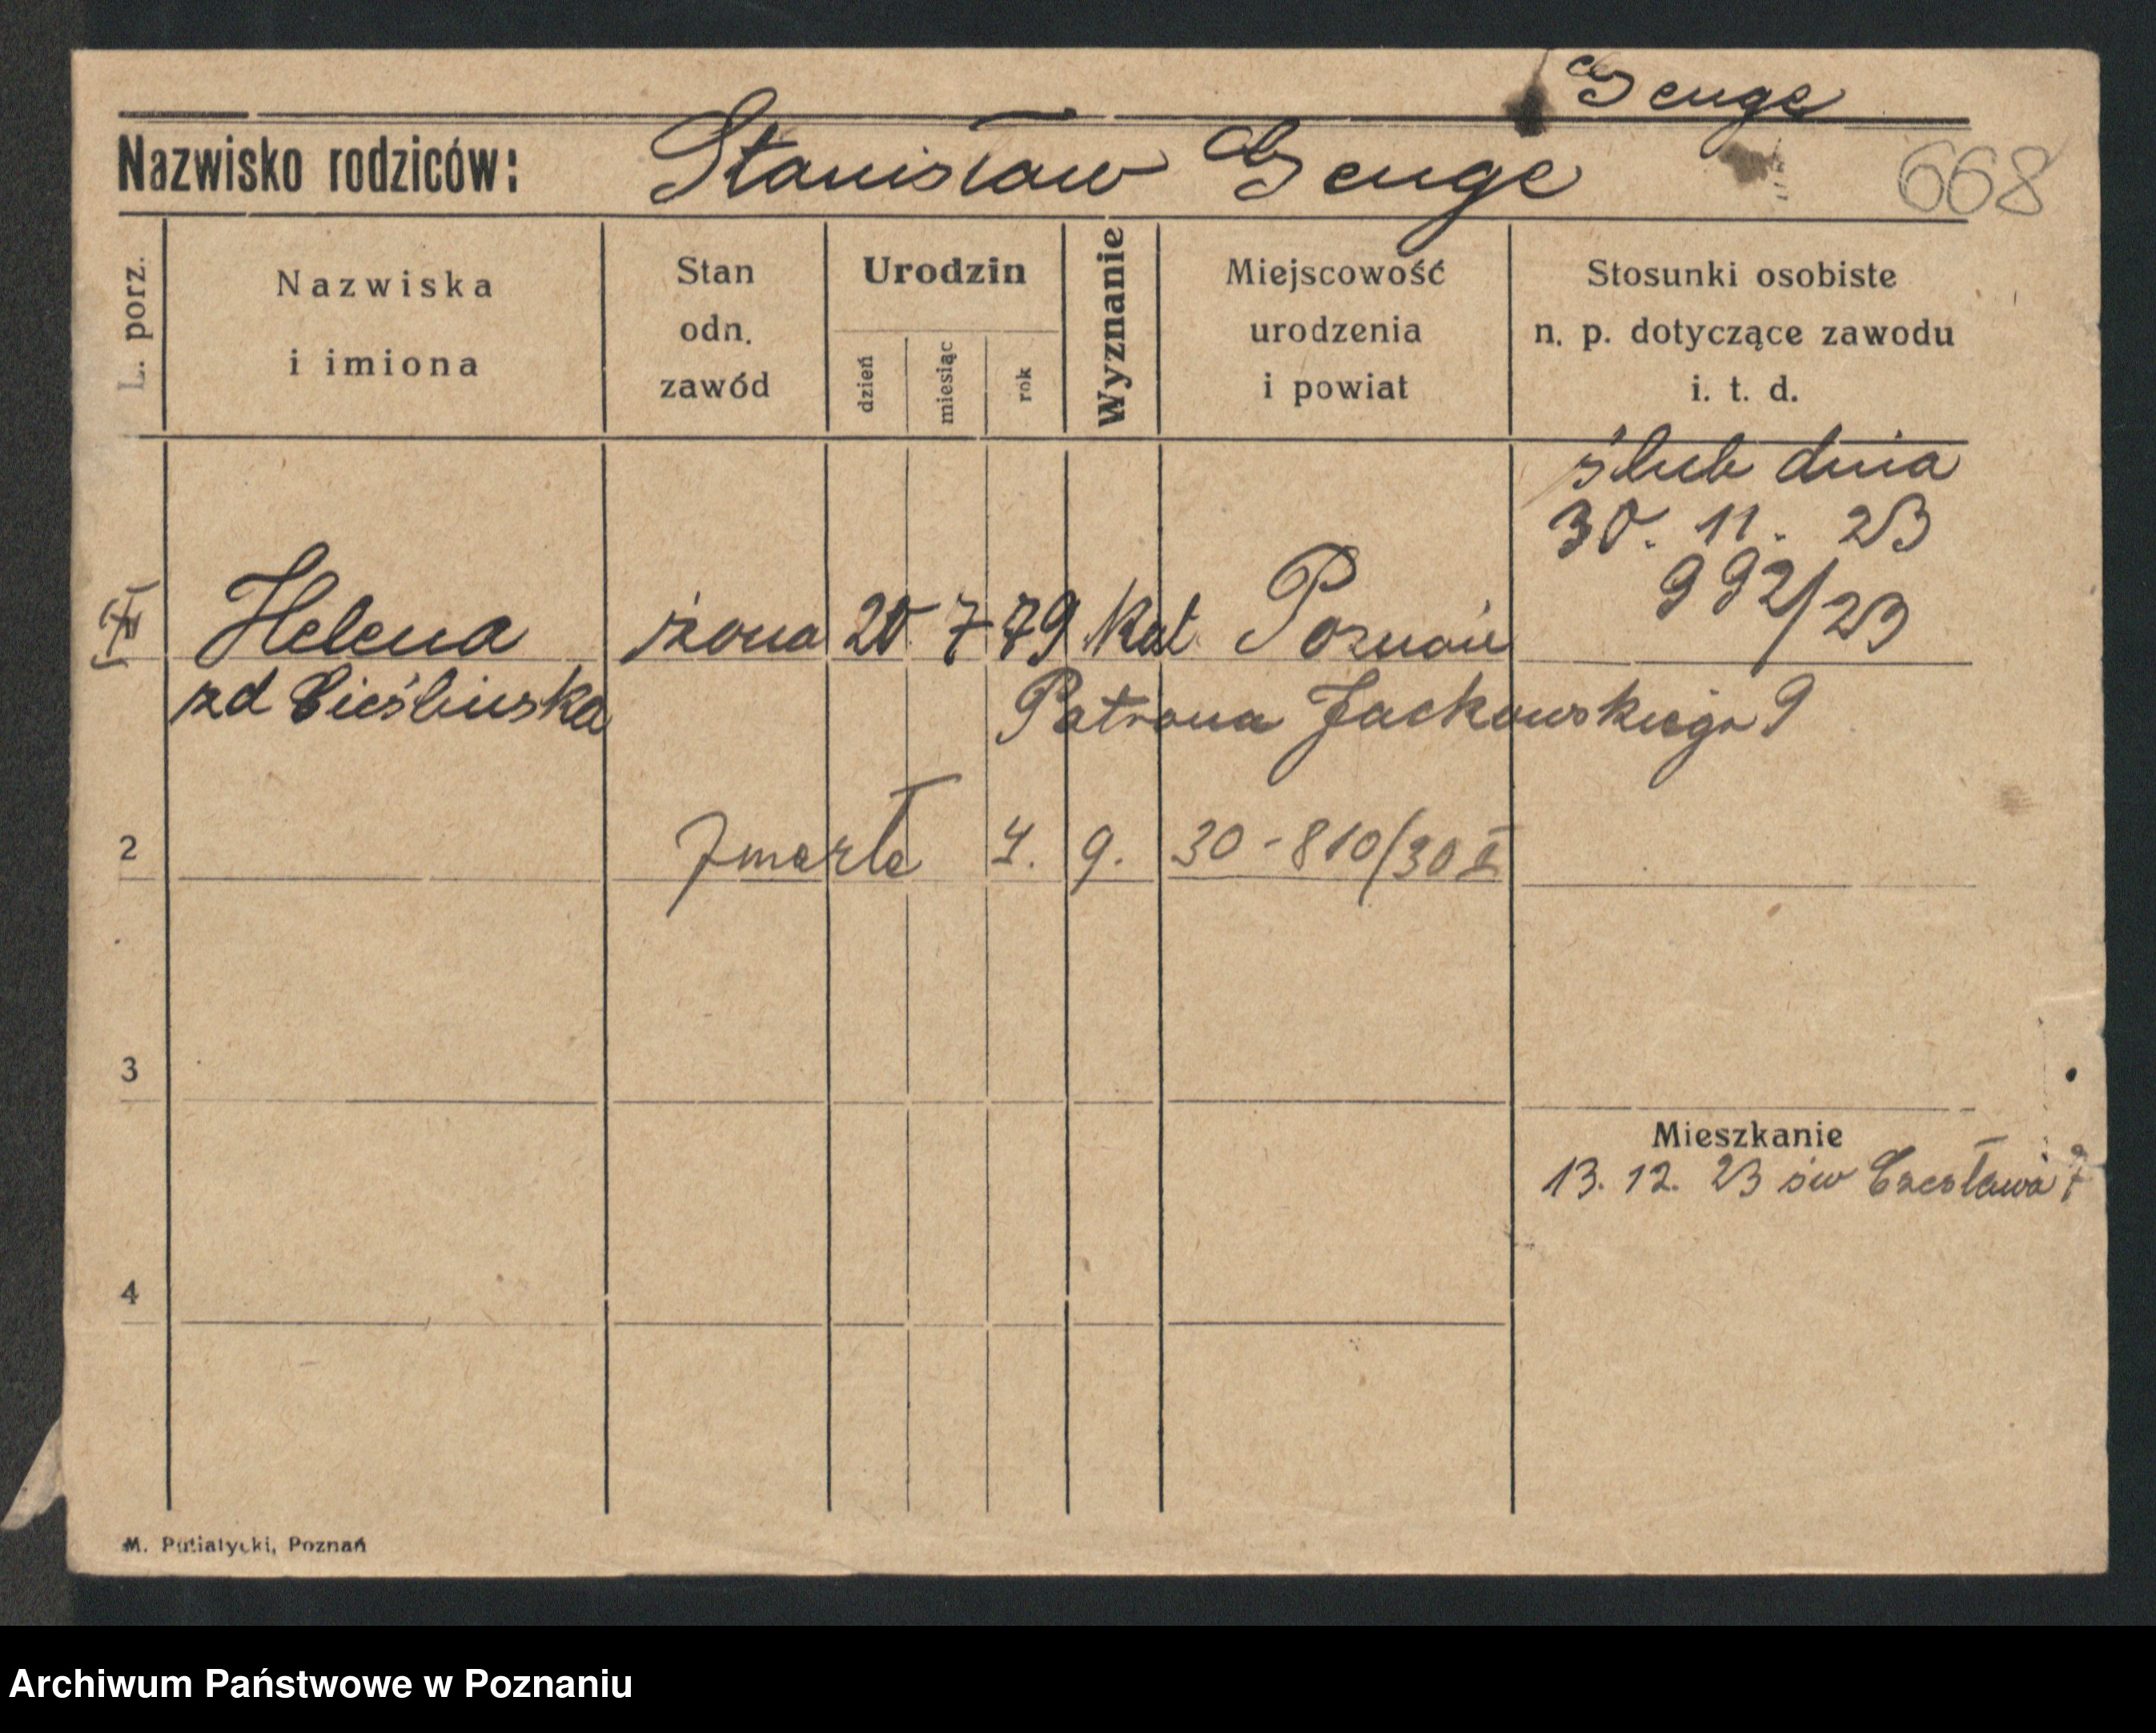 Genge
Nazwisko rodziców: Stanisław Genge
668
L. porz.
Nazwiska i imiona
Stan odn. zawód
Urodzin
dzień miesiąc rok
Wyznanie
Miejscowość urodzenia i powiat
Stosunki osobiste n. p. dotyczące zawodu i. t. d.
ślub dnia
30. 11. 23
992/23
II Helena żona 20 7 79 kat. Poznań
zd Cieślińska Patrona Jackowskiego 9
2 Zmarła 4. 9. 30 - 810/30 I
3
Mieszkanie
13. 12. 23 św Czesława 7
4
M. Putiatycki, Poznań
Archiwum Państwowe w Poznaniu